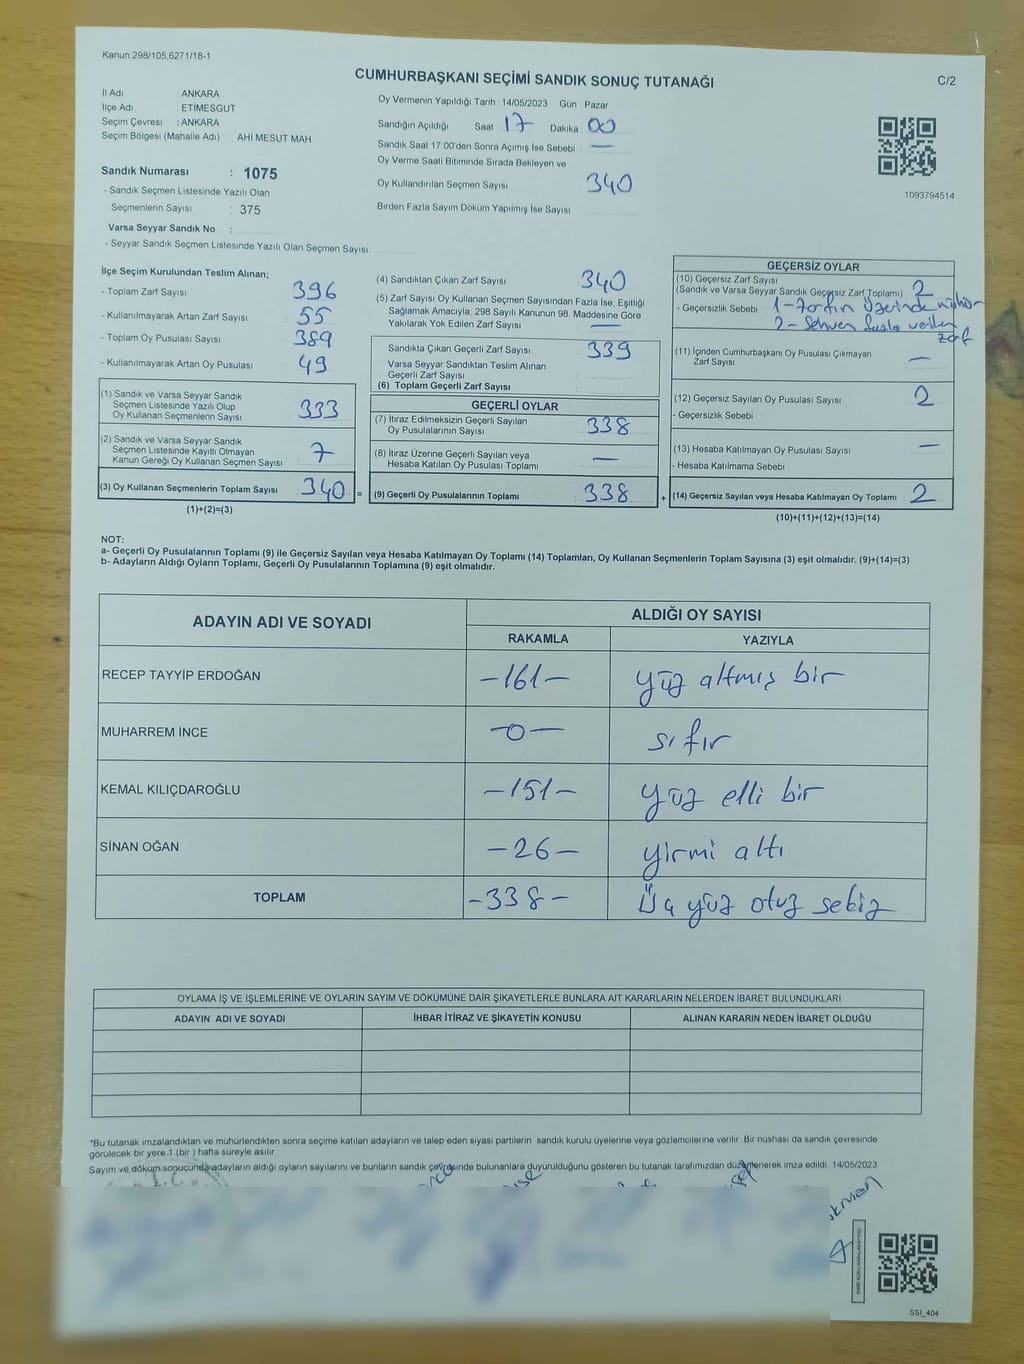 Kanun;298/105,6271/18-1
CUMHURBAŞKANI SEÇİMİ SANDIK SONUÇ TUTANAĞI
C/2
İl Adı : ANKARA
İlçe Adı : ETİMESGUT
Seçim Çevresi : ANKARA
Seçim Bölgesi (Mahalle Adı) : AHİ MESUT MAH
Sandık Numarası : 1075
- Sandık Seçmen Listesinde Yazılı Olan
Seçmenlerin Sayısı : 375
Varsa Seyyar Sandık No :
- Seyyar Sandık Seçmen Listesinde Yazılı Olan Seçmen Sayısı:
Oy Vermenin Yapıldığı Tarih : 14/05/2023 Gün : Pazar
Sandığın Açıldığı Saat 17 Dakika 00
Sandık Saat 17:00'den Sonra Açımış İse Sebebi —
Oy Verme Saati Bitiminde Sırada Bekleyen ve
Oy Kullandırılan Seçmen Sayısı 340
Birden Fazla Sayım Döküm Yapılmış İse Sayısı
1093794514
İlçe Seçim Kurulundan Teslim Alınan;
- Toplam Zarf Sayısı 396
- Kullanılmayarak Artan Zarf Sayısı 55
- Toplam Oy Pusulası Sayısı 389
- Kullanılmayarak Artan Oy Pusulası 49
(1) Sandık ve Varsa Seyyar Sandık
Seçmen Listesinde Yazılı Olup
Oy Kullanan Seçmenlerin Sayısı 333
(2) Sandık ve Varsa Seyyar Sandık
Seçmen Listesinde Kayıtlı Olmayan
Kanun Gereği Oy Kullanan Seçmen Sayısı 7
(3) Oy Kullanan Seçmenlerin Toplam Sayısı 340 =
(1)+(2)=(3)
(4) Sandıktan Çıkan Zarf Sayısı 340
(5) Zarf Sayısı Oy Kullanan Seçmen Sayısından Fazla İse, Eşitliği
Sağlamak Amacıyla, 298 Sayılı Kanunun 98. Maddesine Göre
Yakılarak Yok Edilen Zarf Sayısı —
Sandıkta Çıkan Geçerli Zarf Sayısı 339
Varsa Seyyar Sandıktan Teslim Alınan
Geçerli Zarf Sayısı
(6) Toplam Geçerli Zarf Sayısı
GEÇERLİ OYLAR
(7) İtiraz Edilmeksizin Geçerli Sayılan
Oy Pusulalarının Sayısı 338
(8) İtiraz Üzerine Geçerli Sayılan veya
Hesaba Katılan Oy Pusulası Toplamı —
(9) Geçerli Oy Pusulalarının Toplamı 338 +
GEÇERSİZ OYLAR
(10) Geçersiz Zarf Sayısı
(Sandık ve Varsa Seyyar Sandık Geçersiz Zarf Toplamı) 2
- Geçersizlik Sebebi : 1- Zarfın üzerinde mühür
2- Sehven fazla verilen
zarf
(11) İçinden Cumhurbaşkanı Oy Pusulası Çıkmayan
Zarf Sayısı —
(12) Geçersiz Sayılan Oy Pusulası Sayısı 2
- Geçersizlik Sebebi
(13) Hesaba Katılmayan Oy Pusulası Sayısı —
- Hesaba Katılmama Sebebi
(14) Geçersiz Sayılan veya Hesaba Katılmayan Oy Toplamı 2
(10)+(11)+(12)+(13)=(14)
NOT:
a- Geçerli Oy Pusulalarının Toplamı (9) ile Geçersiz Sayılan veya Hesaba Katılmayan Oy Toplamı (14) Toplamları, Oy Kullanan Seçmenlerin Toplam Sayısına (3) eşit olmalıdır. (9)+(14)=(3)
b- Adayların Aldığı Oyların Toplamı, Geçerli Oy Pusulalarının Toplamına (9) eşit olmalıdır.
ADAYIN ADI VE SOYADI
ALDIĞI OY SAYISI
RAKAMLA YAZIYLA
RECEP TAYYİP ERDOĞAN -161- yüz altmış bir
MUHARREM İNCE -0- sıfır
KEMAL KILIÇDAROĞLU -151- yüz elli bir
SİNAN OĞAN -26- yirmi altı
TOPLAM -338- Üç yüz otuz sekiz
OYLAMA İŞ VE İŞLEMLERİNE VE OYLARIN SAYIM VE DÖKÜMÜNE DAİR ŞİKAYETLERLE BUNLARA AİT KARARLARIN NELERDEN İBARET BULUNDUKLARI
ADAYIN ADI VE SOYADI İHBAR İTİRAZ VE ŞİKAYETİN KONUSU ALINAN KARARIN NEDEN İBARET OLDUĞU
*Bu tutanak imzalandıktan ve mühürlendikten sonra seçime katılan adayların ve talep eden siyasi partilerin sandık kurulu üyelerine veya gözlemcilerine verilir. Bir nüshası da sandık çevresinde
görülecek bir yere 1 (bir) hafta süreyle asılır.
Sayım ve döküm sonucunda adayların aldığı oyların sayılarını ve bunların sandık çevresinde bulunanlara duyurulduğunu gösteren bu tutanak tarafımızdan düzenlenerek imza edildi. 14/05/2023
SSİ_404